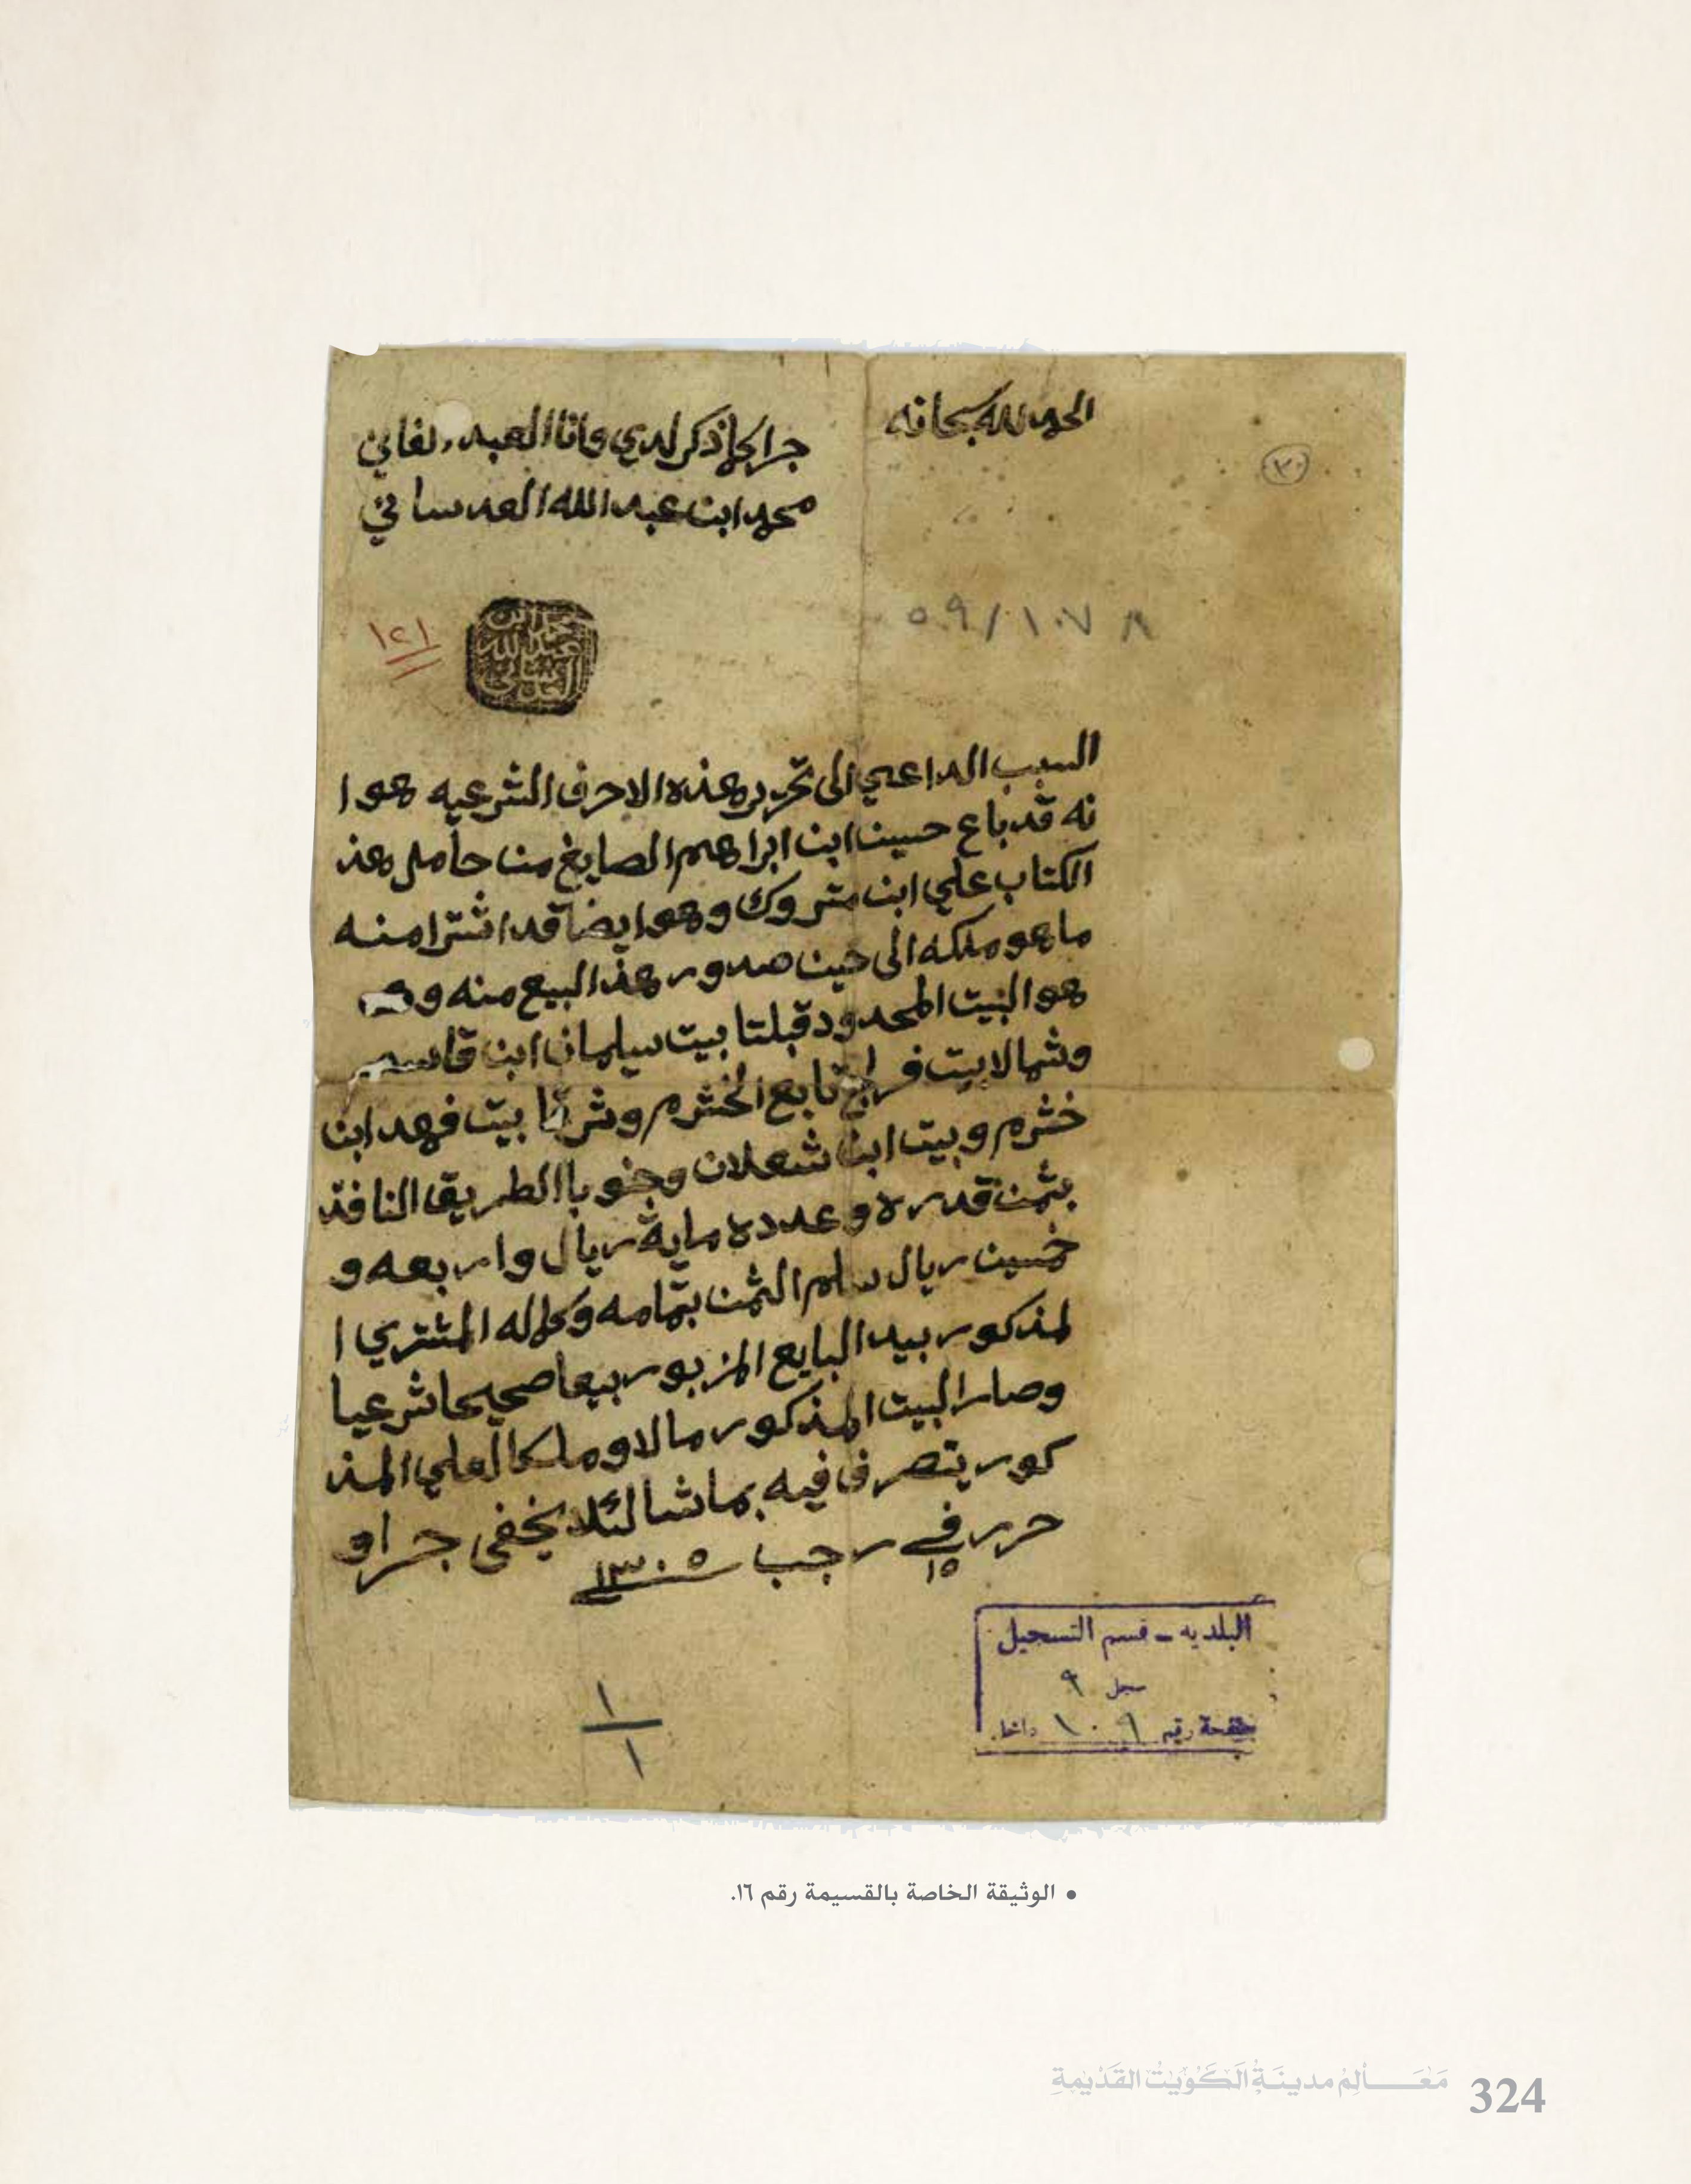 الحمد لله سبحانه
جرا كما ذكر لدي وانا العبد الفاني
محمد ابن عبد الله العدساني
٣٠
٥٩/١٠٧٨
١٢١
محمد ابن
عبد الله
العدساني
السبب الداعي الى تحرير هذه الاحرف الشرعيه هوا
نه قد باع حسين ابن ابراهيم الصايغ من حامل هذ
الكتاب علي ابن متروك وهو ايضا قد اشترا منه
ما هو ملكه الى حين صدور هذ البيع منه و
هو البيت المحدود قبلتا بيت سيلمان ابن قاسم
وشمالا بيت فراج تابع الخشرم وشرقا بيت فهد ابن
خشرم وبيت ابن شعلان وجنوبا الطريق النافذ
بثمن قدره وعدده ماية ريال واربعه و
خمسين ريال سلم الثمن بتمامه وكماله المشتري ا
لمذكور بيد البايع المزبور بيعا صحيحا شرعيا
وصار البيت المذكور مالا وملكا لعلي المذ
كور يتصرف فيه بما شا لئلا يخفى جرا و
حرر في ١٥ رجب سنة ١٣٠٥
البلديه - قسم التسجيل
سجل ٩
صفحة رقم ١٠٩ داخل
١
١
• الوثيقة الخاصة بالقسيمة رقم ١٦.
مَعَـــالِمُ مدينَةِ الكُوَيتِ القَدْيمةِ 324